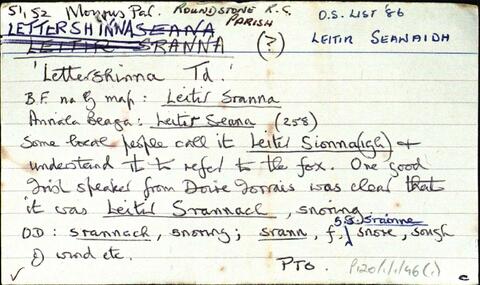 51, 52 Moyrus Par. ROUNDSTONE R.C. PARISH
O.S. LIST '86
LETTERSHINNASEANA
LEITIR SRANNA (?) LEITIR SEAWAIDH
'Lettershinna Td.'
B.F. na Gy map: Leitir Sranna
Annala Beaga: Leitir Seanna (258)
Some local people call it Leitir Sionna(igh) &
understand it to refer to the fox. One good
Irish speaker from Doire Iorrais was clear that
it was Leitir Srannach, snoring
g.s. srainne
O.D: srannach, snoring; srann, f. snore, sough
of wind etc.
✓ PTO. P120/1/1/46(i) C